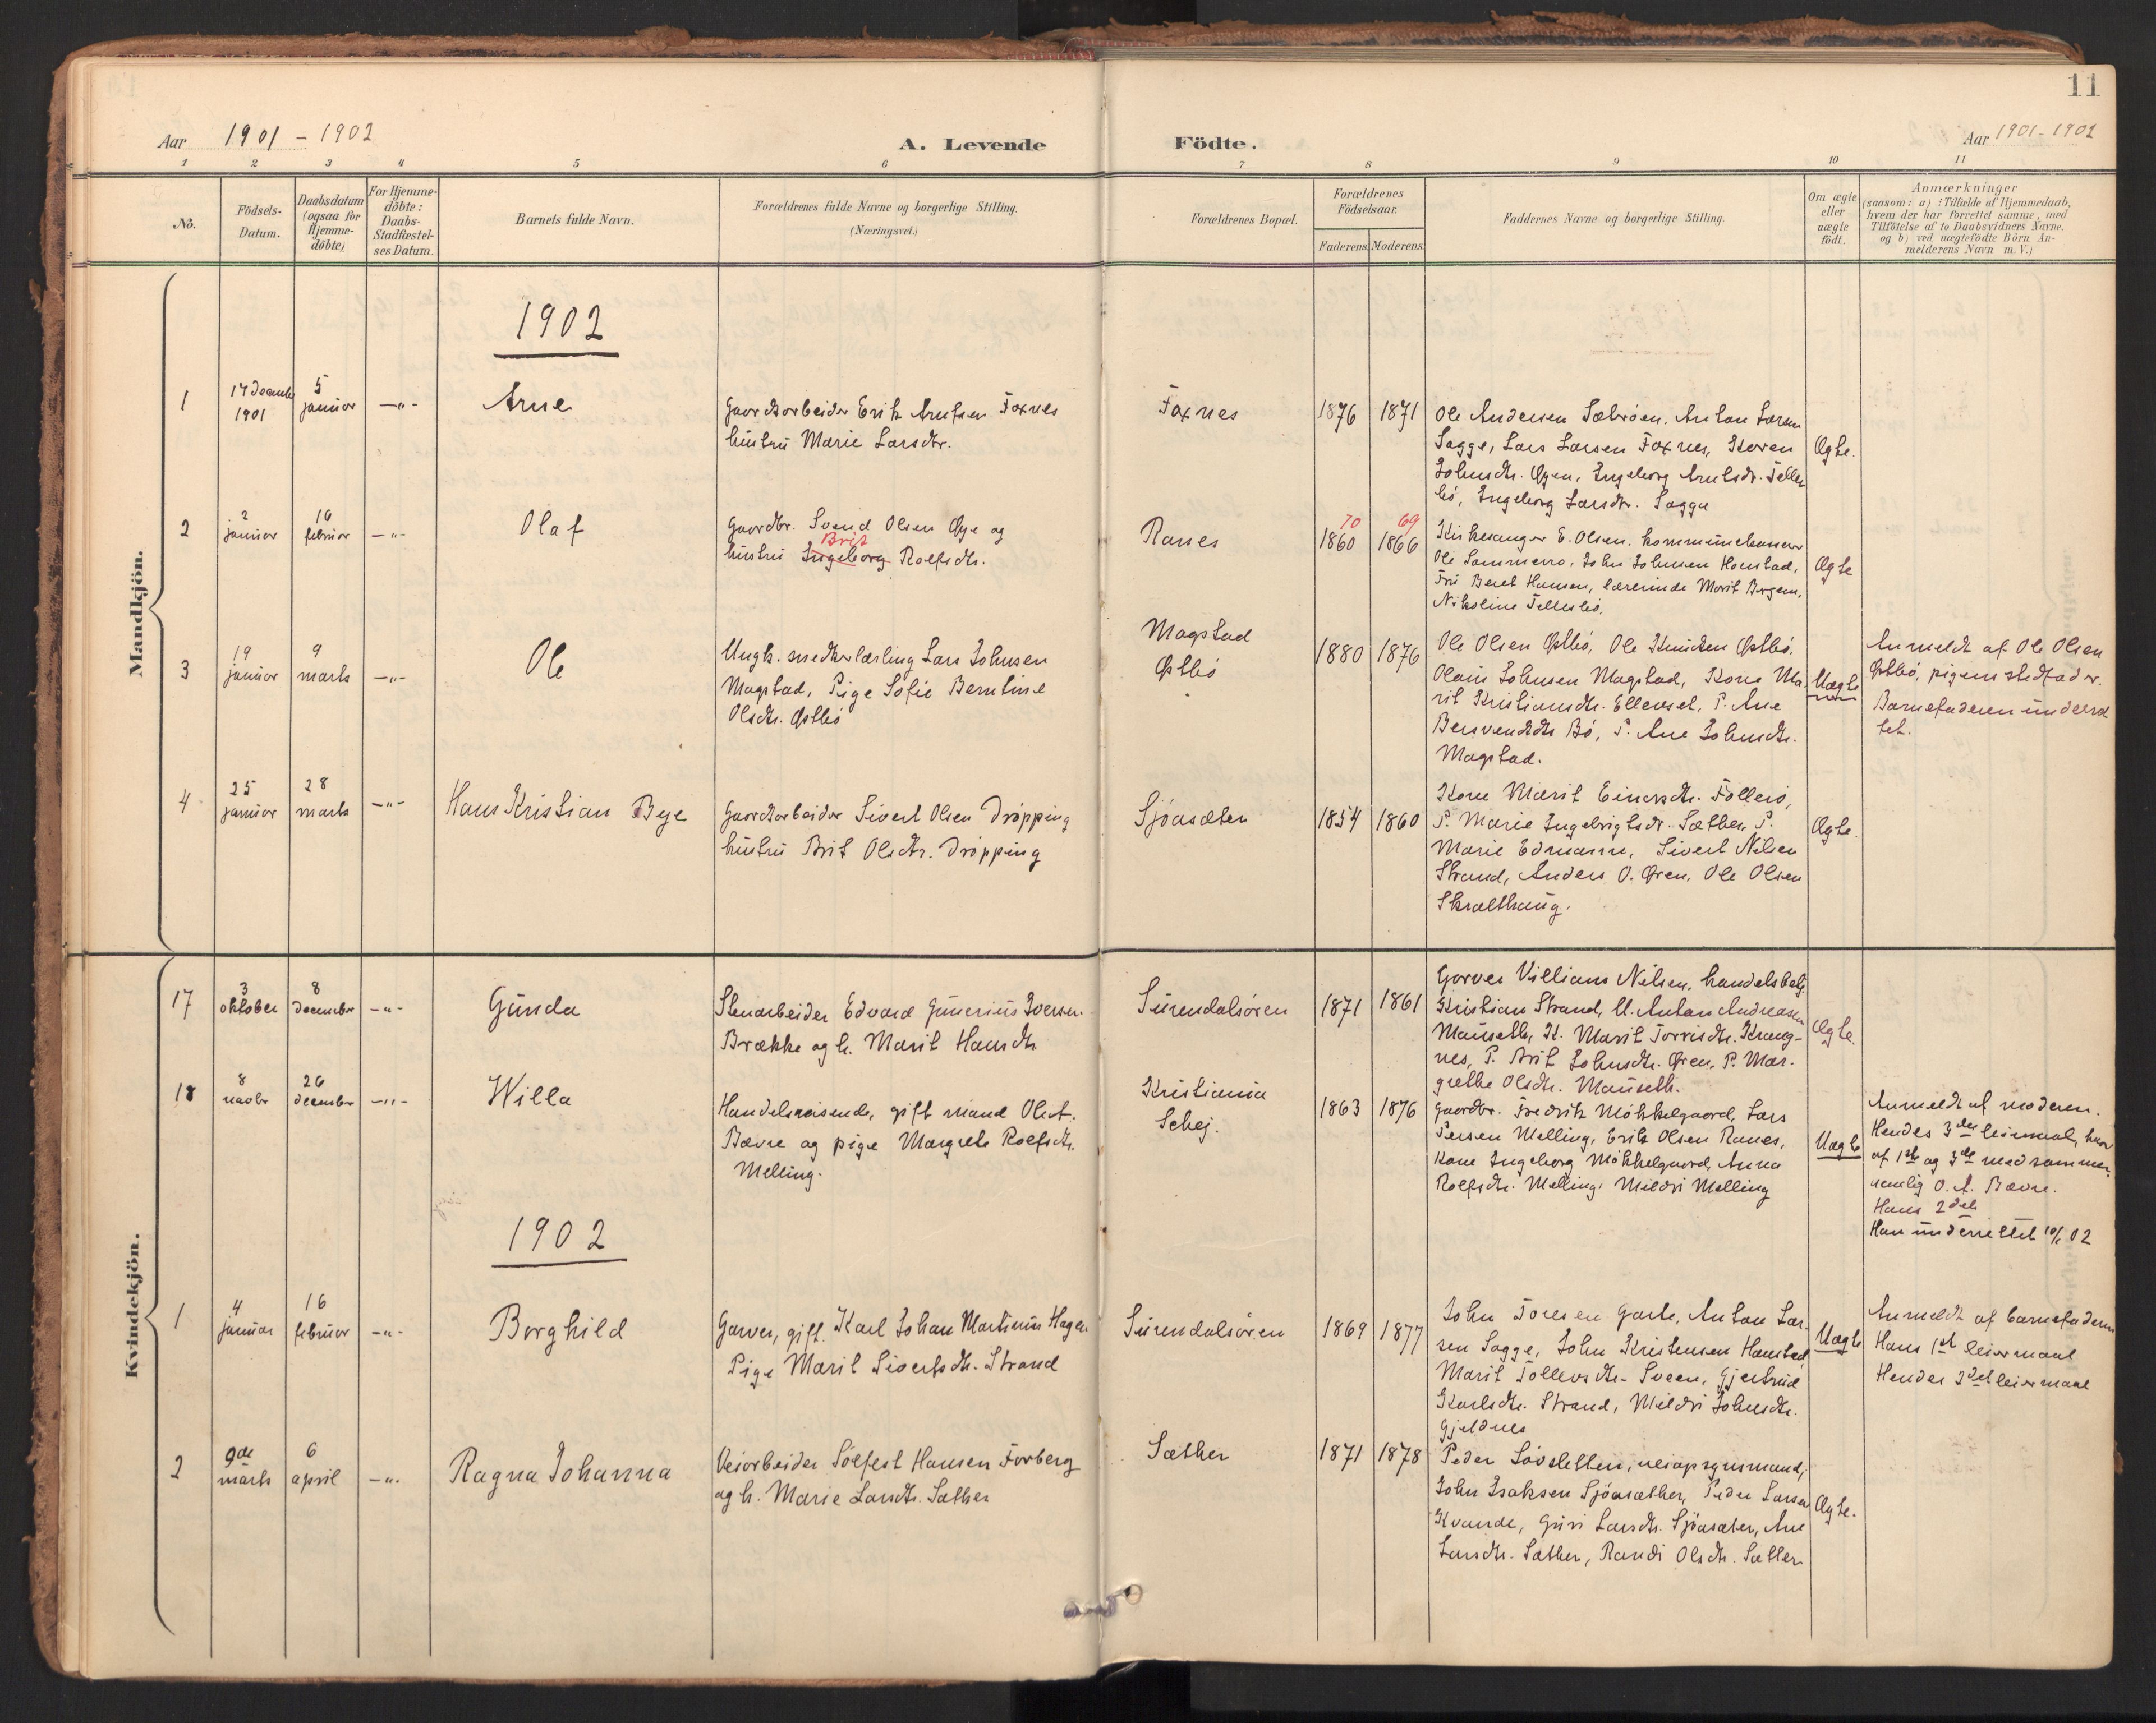 11
Aar 1901 - 1902
A. Levende Födte.
Aar 1901-1902
1 2 3 4 5 6 7 8 9 10 11
No.
Födsels-
Datum.
Daabsdatum
(ogsaa for
Hjemme-
döbte)
For Hjemme-
döbte:
Daabs-
Stadfæstel-
ses Datum.
Barnets fulde Navn.
Forældrenes fulde Navne og borgerlige Stilling.
(Næringsvei.)
Forældrenes Bopæl.
Forældrenes
Födselsaar.
Faderens. Moderens.
Faddernes Navne og borgerlige Stilling.
Om ægte
eller
uægte
födt.
Anmærkninger
(saasom: a) i Tilfælde af Hjemmedaab,
hvem der har forrettet samme, med
Tilföielse af to Daabsvidners Navne.
og b) ved uægtefödte Börn An-
melderens Navn m. V.)
Mandkjön.
1902
1
17 Decembr
1901
5
januar
—"—
Arne
Gaardsarbeider Erik Arntsen Foxnes
hustru Marie Larsdtr.
Foxnes
1876 1871
Ole Andersen Sæbröen. Anton Larsen
Sagge, Lars Larsen Foxnes, Karen
Johnsdtr. Øyen, Ingeborg Arntsdr. Telles
bö, Ingeborg Larsdtr. Sagge
Ægte.
2
2
januar
16
februar
—"—
Olaf
Gaardbr. Svend Olsen Øye og
Brit
hustru Ingeborg Roefsdtr.
Ranes
70 69
1860 1866
Kirkesanger E. Olsen. kommunekasserer
Ole Sommerro, John Johnsen Honstad,
Fru Beret Hansen, lærerinde Marit Bergem,
Nikoline Tellesbö.
Ægte
3
19
januar
9
marts
—"—
Ole
Ungk. snedkerlærling Lars Johnsen
Magstad, Pige Sofie Berntine
Olsdtr. Østbö
Magstad
Østbö
1880 1876
Ole Olsen Østbö, Ole Knudsen Østbö.
Olaus Johnsen Magstad, Kone Ma-
rit Kristiansdtr. Ellevset, P. Ane
Bersvendsdtr Bö, P. Ane Johnsdtr.
Magstad.
Uægte
Anmeldt af Ole Olsen
Østbö, pigens stedfader.
Barnefaderen underret
tet.
4
25
januar
28
marts
—"—
Hans Kristian Bye
Gaardsarbeider Sivert Olsen Dröpping
hustru Brit Olsdtr. Dröpping
Sjöasæter
1854 1860
Kone Marit Einersdtr. Follerö,
P. Marie Ingebrigtsdr. Sæther, P.
Marie Edmann, Sivert Nilsen
Strand, Anders O. Øren, Ole Olsen
Skralthaug.
Ægte.
Kvindekjön.
17
3
oktober
8
december
—"—
Gunda
Stenarbeider Edvard Gunerius Iversen
Brække og h. Marit Hansdtr
Surendalsören
1871 1861
Garver Villiams Nilsen, handelsbetj.
Kristian Strand, U. Anton Andreasen
Mauseth, K. Marit Torrisdtr. Krang-
nes, P. Brit Johnsdtr. Øren, P. Mar-
grethe Olsdtr. Mauseth.
Ægte.
18
8
novbr
26
december
—"—
Willa
Handelsreisende, gift mand Ole A.
Bævre og pige Margrete Roefsdtr.
Melling.
Kristiania
Schej.
1863 1876
Gaardbr. Fredrik Möhkelgaard, Lars
Persen Melling, Erik Olsen Ranes,
Kone Ingeborg Möhkelgaard, Anna
Roefsdtr. Melling, Mildri Melling
Uægte
Anmeldt af moderen.
Hendes 3die leiermaal, hvor
af 1ste og 3die med samme,
nemlig O. A. Bævre.
Hans 2det
Han underrettet 10/1 02
1902
1
4
januar
16
februar
—"—
Borghild
Garver, gift. Karl Johan Martinus Hagen
Pige Marit Sivertsdtr. Strand
Surendalsören
1869 1877
John Toresen Garte, Anton Lar-
sen Sagge, John Kristensen Honstad
Marit Tollevsdtr. Sveen, Gjertrud
Karlsdtr. Strand, Mildri Johnsdtr.
Gjeldnes
Uægte
Anmeldt af barnefaderen
Hans 1ste leiermaal
Hendes 2det leiermaal
2
9de
marts
6
april
—"—
Ragna Johanna
Veiarbeider Solfest Hansen Forberg
og h. Marie Larsdtr. Sæther
Sæther
1871 1878
Peder Lövsletten, veiopsynsmand,
John Isaksen Sjöasæther, Peder Larsen
Kvande, Guri Larsdtr. Sjöasæter, Ane
Larsdtr. Sæther, Randi Olsdtr. Sæther
Ægte.